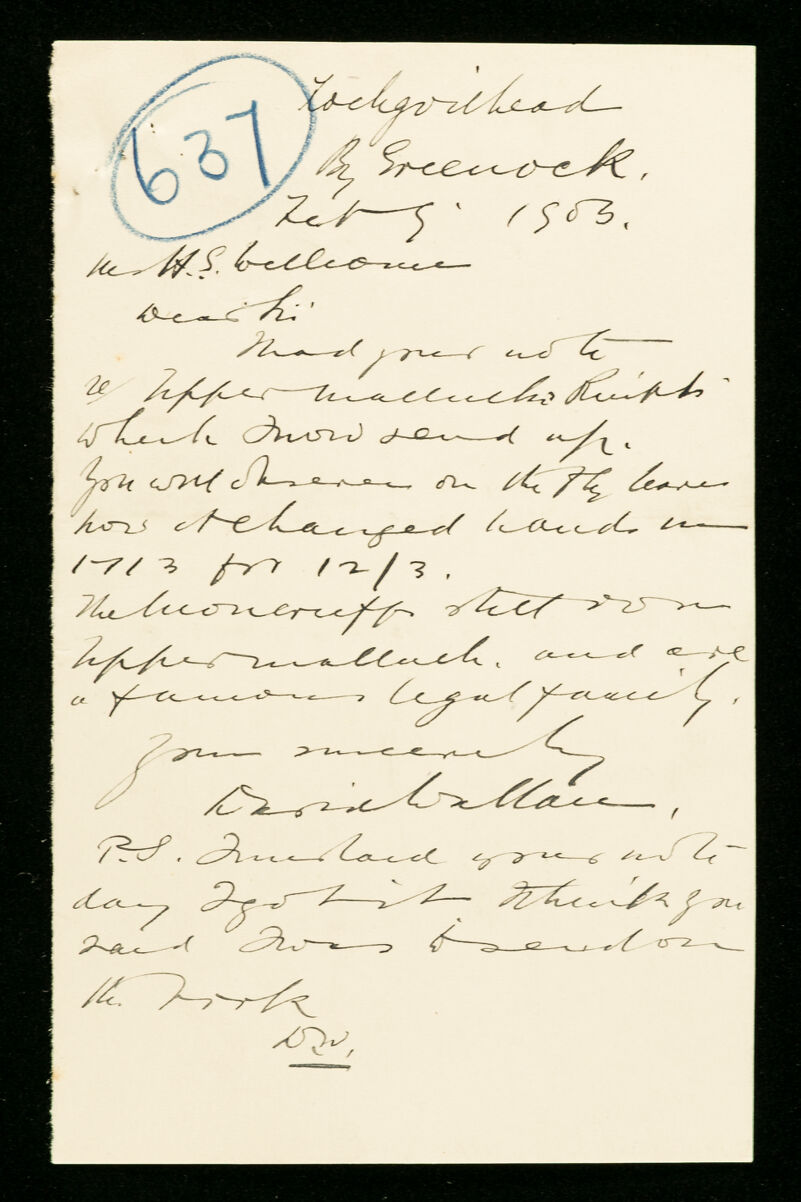 637
Lochgoilhead
By Greenock.
Feb 9 1903.
Mr H.S. Wellcome
Dear Sir
I had your note
re/ Tippermalluch's Receipts
which I now send up.
You will observe on the Fly leaves
how it changed hands in
1713 for 12/3.
The Moncrieffs still own
Tippermalluch. and are
a famous legal family.
Yours sincerely
David Wallace,
P.S. I mislaid your note
day I got it I think you
said I was to send on
the Book
DW.